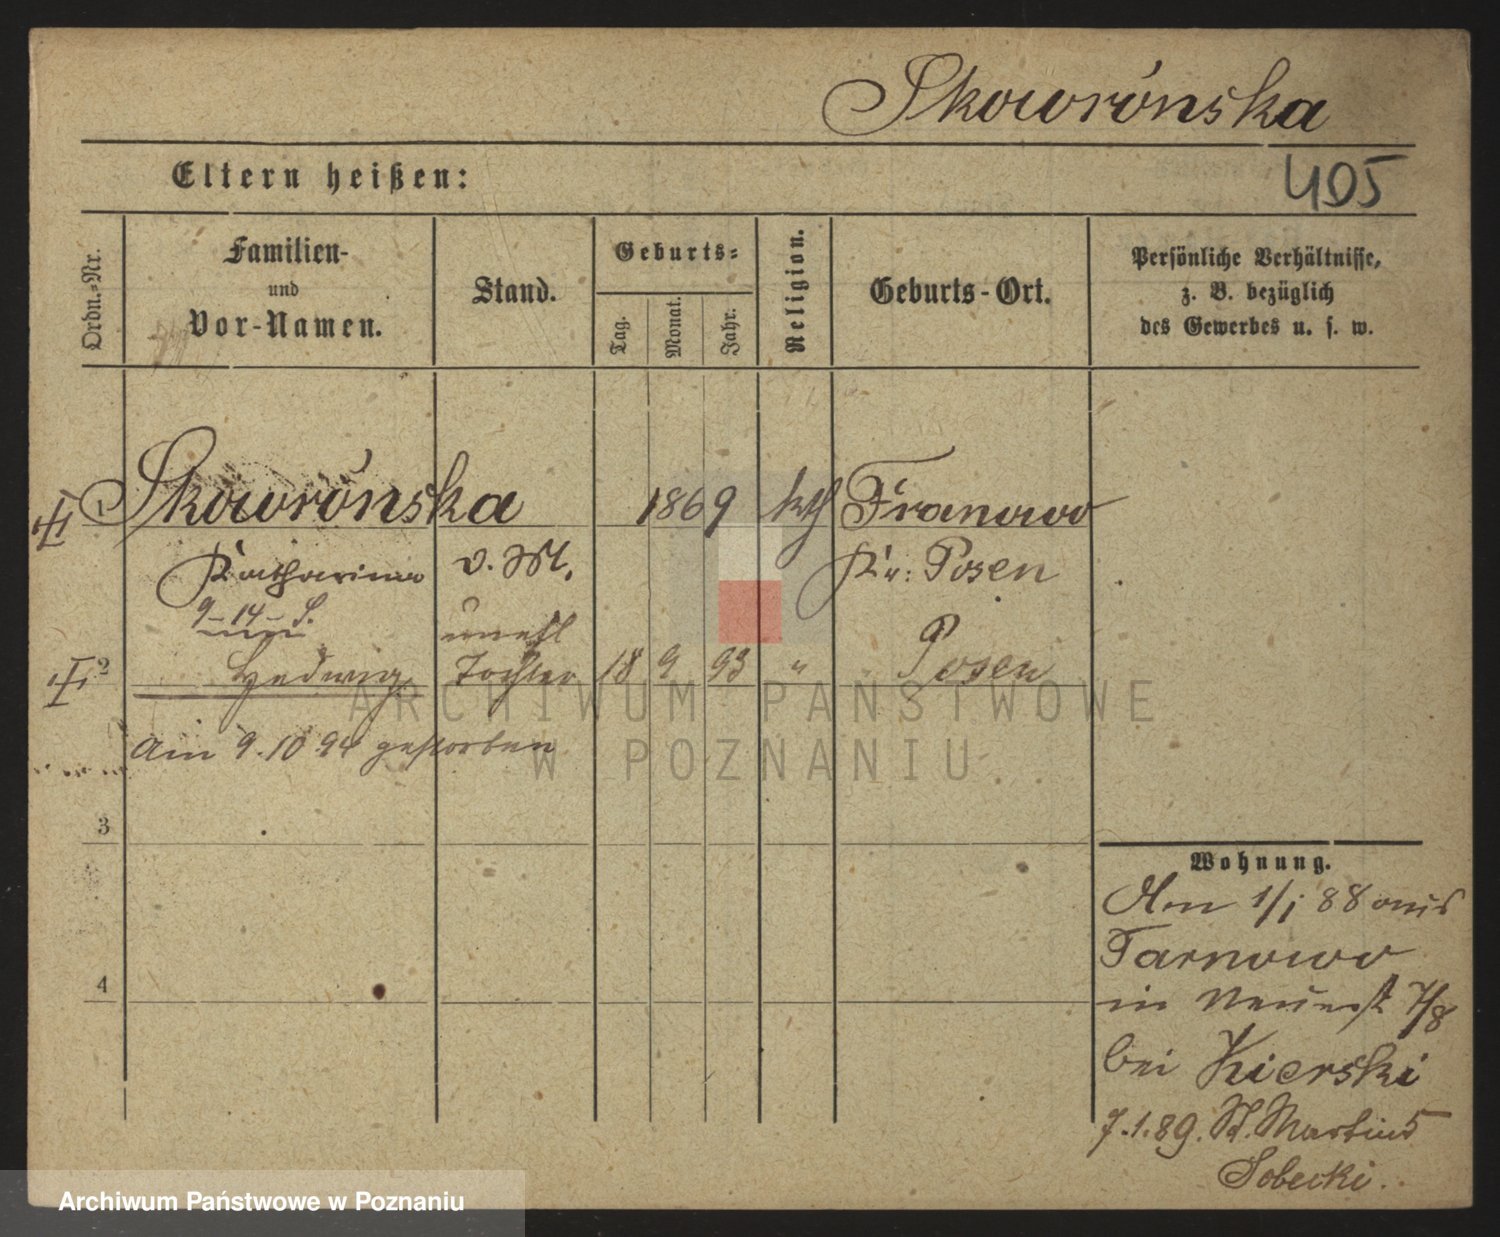 Skowrónska
405
Eltern heißen:
Ordn.-Nr.
Familien-
und
Vor-Namen.
Stand.
Geburts-
Tag.
Monat.
Jahr.
Religion.
Geburts-Ort.
Persönliche Verhältnisse,
z. B. bezüglich
des Gewerbes u. s. w.
1 Skowrónska 1869 kth Franowo
Katharina d. M. Kr: Posen
9-14- S.
unehl
2 Hedwig Tochter 18 9 93 " Posen
am 9.10 94 gestorben
3
4
Wohnung.
Am 1/1 88 aus
Tarnowo
in Neuerst 7/8
bei Kierski
7.1.89. St. Martin 5
Sobecki.
ARCHIWUM PAŃSTWOWE
W POZNANIU
Archiwum Państwowe w Poznaniu